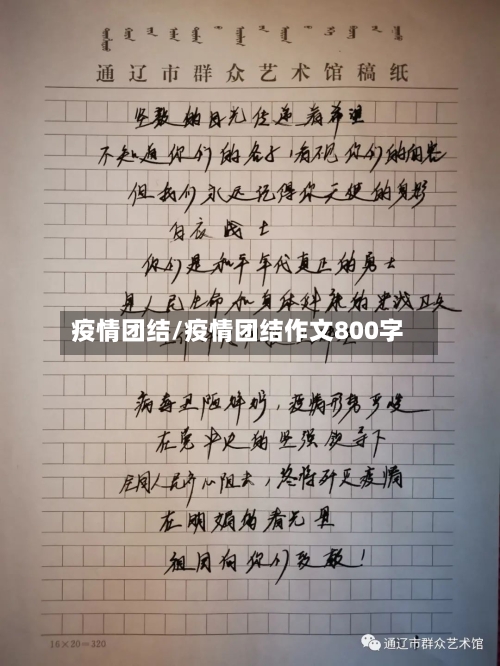 通辽市群众艺术馆稿纸
坚毅的目光传递着希望
不知道你们的名字,看不见你们的面容
但我们永远记得你天使的身影
白衣战士
你们是和平年代真正的勇士
是人民生命和身体健康的忠诚卫士
疫情团结/疫情团结作文800字
病毒丑陋肆虐,疫情形势严峻
在党中央的坚强领导下
全国人民齐心阻击,终将歼灭疫情
在明媚的春光里
祖国向你们致敬!
16×20=320
通辽市群众艺术馆